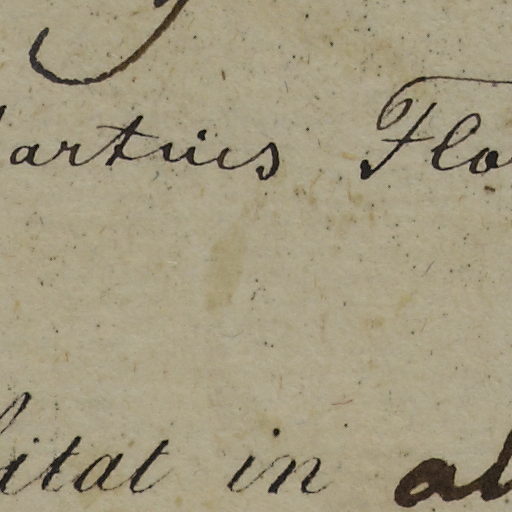 artius Flo
itat in al